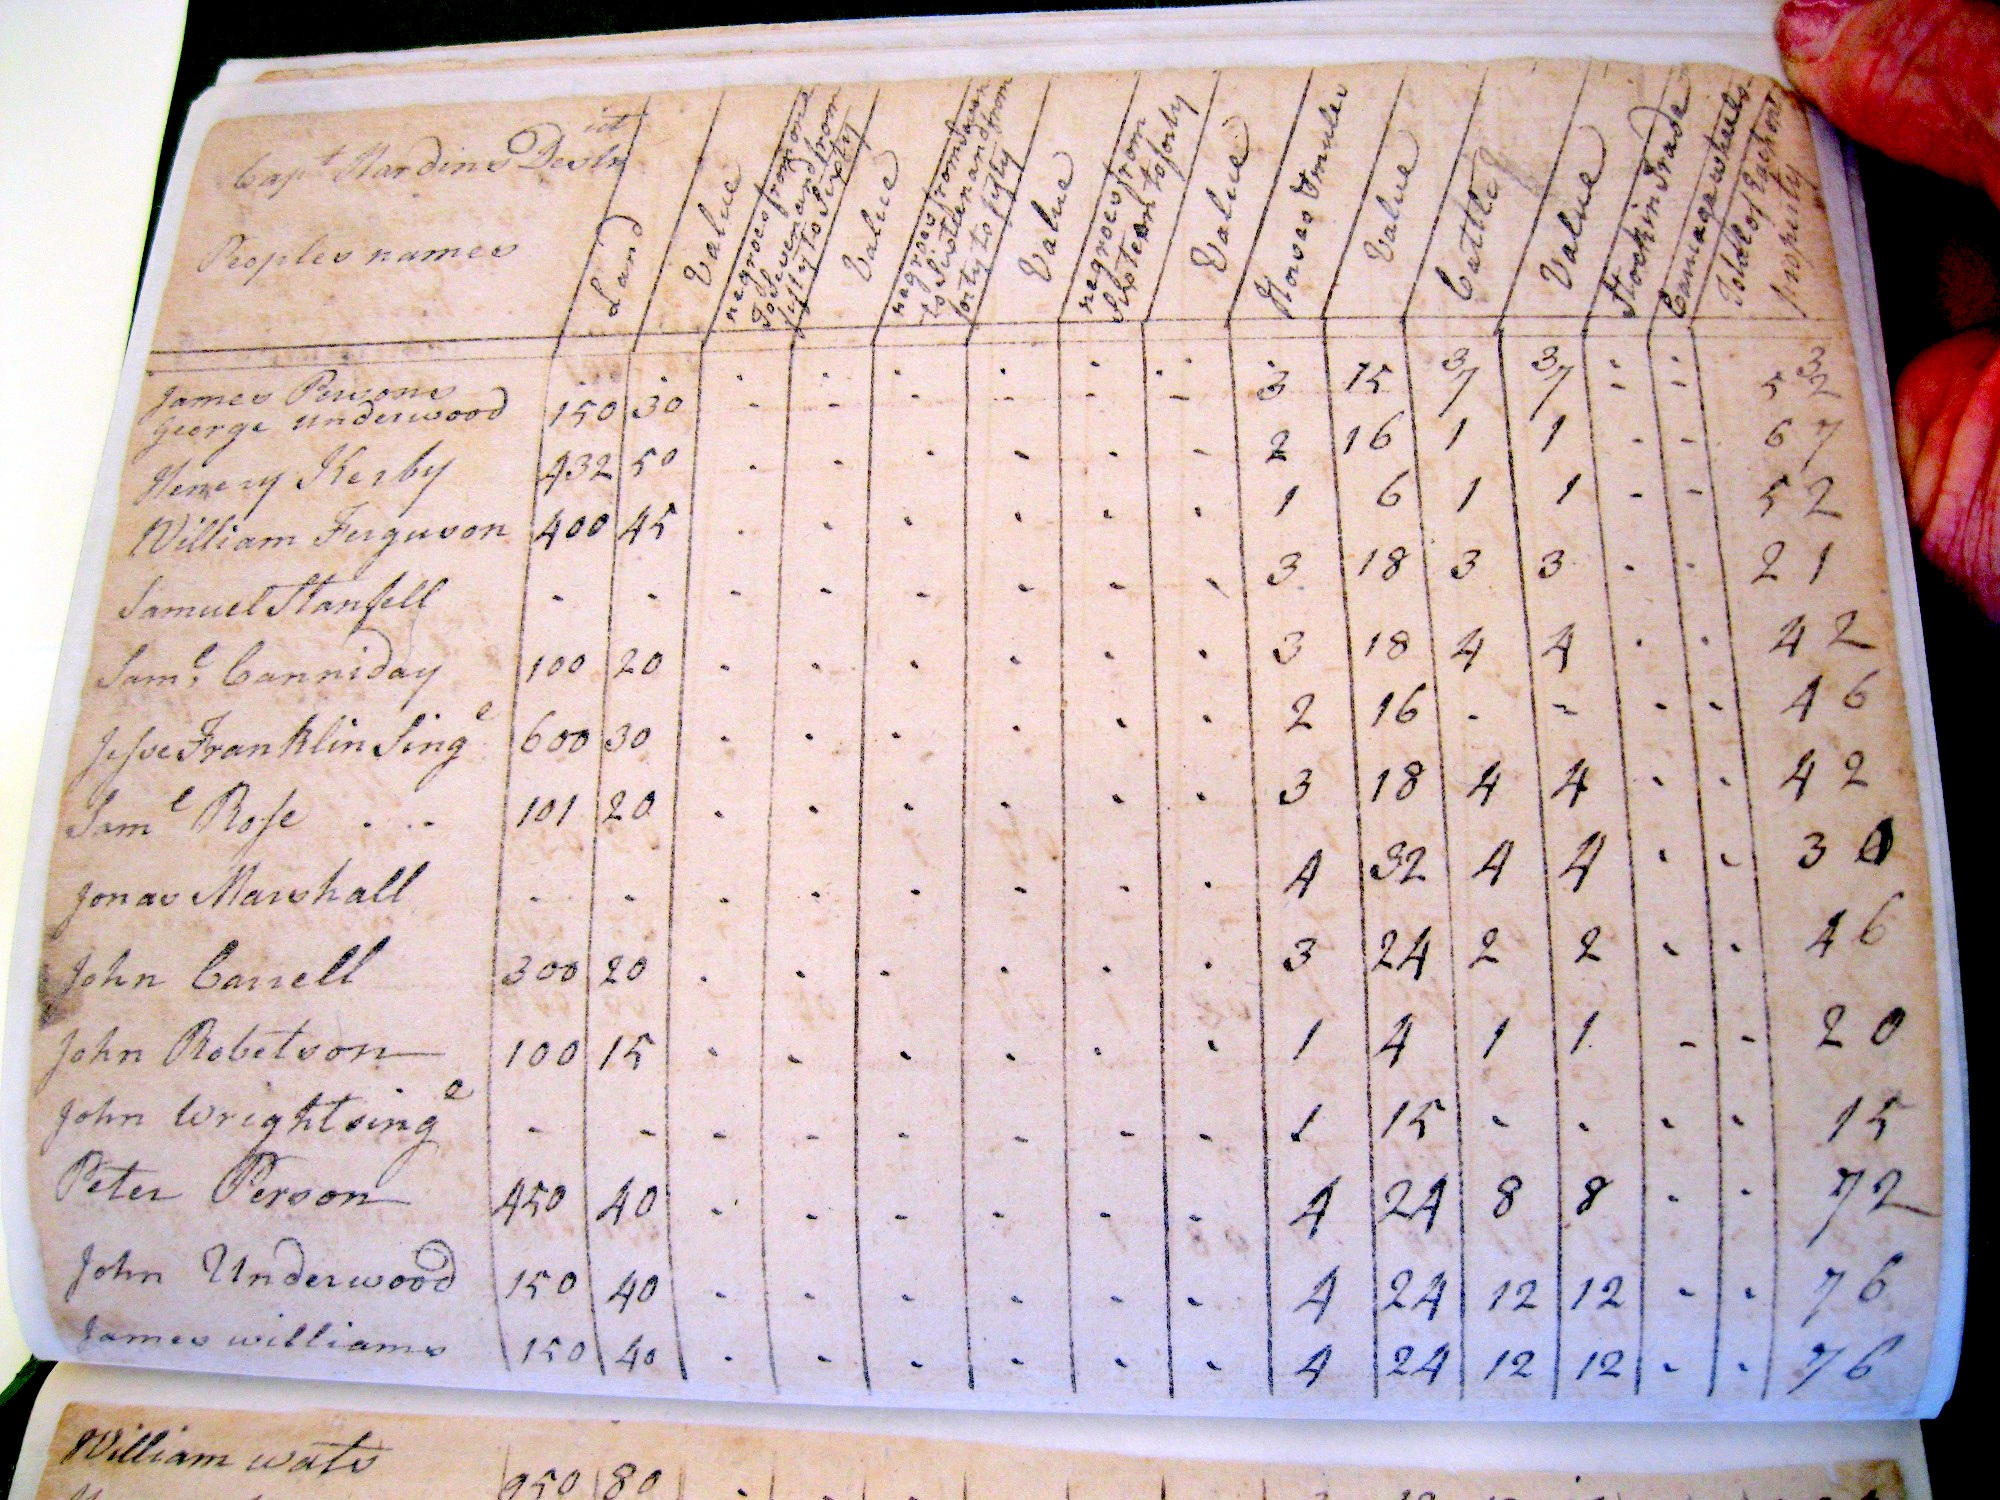 Capt Hardins Destrict
Peoples names | Land | Value | negroes from one to Seven and from fifty to Sixty | Value | negroes from Seven to Sixteen and from forty to fifty | Value | negroes from Sixteen to forty | Value | Horses & mules | Value | Cattle | Value | Stock in Trade | Carriage wheels | Total of Each ons property
James Persons - - - - - - - - 3 15 3 3 - - 3
George underwood 150 30 - - - - - - 7 7 - - 52
Henery Kerby 432 50 - - - - - - 2 16 1 1 - - 67
William Ferguson 400 45 - - - - - - 1 6 1 1 - - 52
Samuel Stanfell - - - - - - - - 3 18 3 3 - - 21
Saml Canniday 100 20 - - - - - - 3 18 4 4 - - 42
Jesse Franklin Singe 600 30 - - - - - - 2 16 - - - - 46
Saml Rose 101 20 - - - - - - 3 18 4 4 - - 42
Jonas Marshall - - - - - - - - 4 32 4 4 - - 36
John Carrell 300 20 - - - - - - 3 24 2 2 - - 46
John Robetson 100 15 - - - - - - 1 4 1 1 - - 20
John Wright singe - - - - - - - - 1 15 - - - - 15
Peter Person 450 40 - - - - - - 4 24 8 8 - - 72
John Underwood 150 40 - - - - - - 4 24 12 12 - - 76
James williams 150 40 - - - - - - 4 24 12 12 - - 76
William wats 950 80